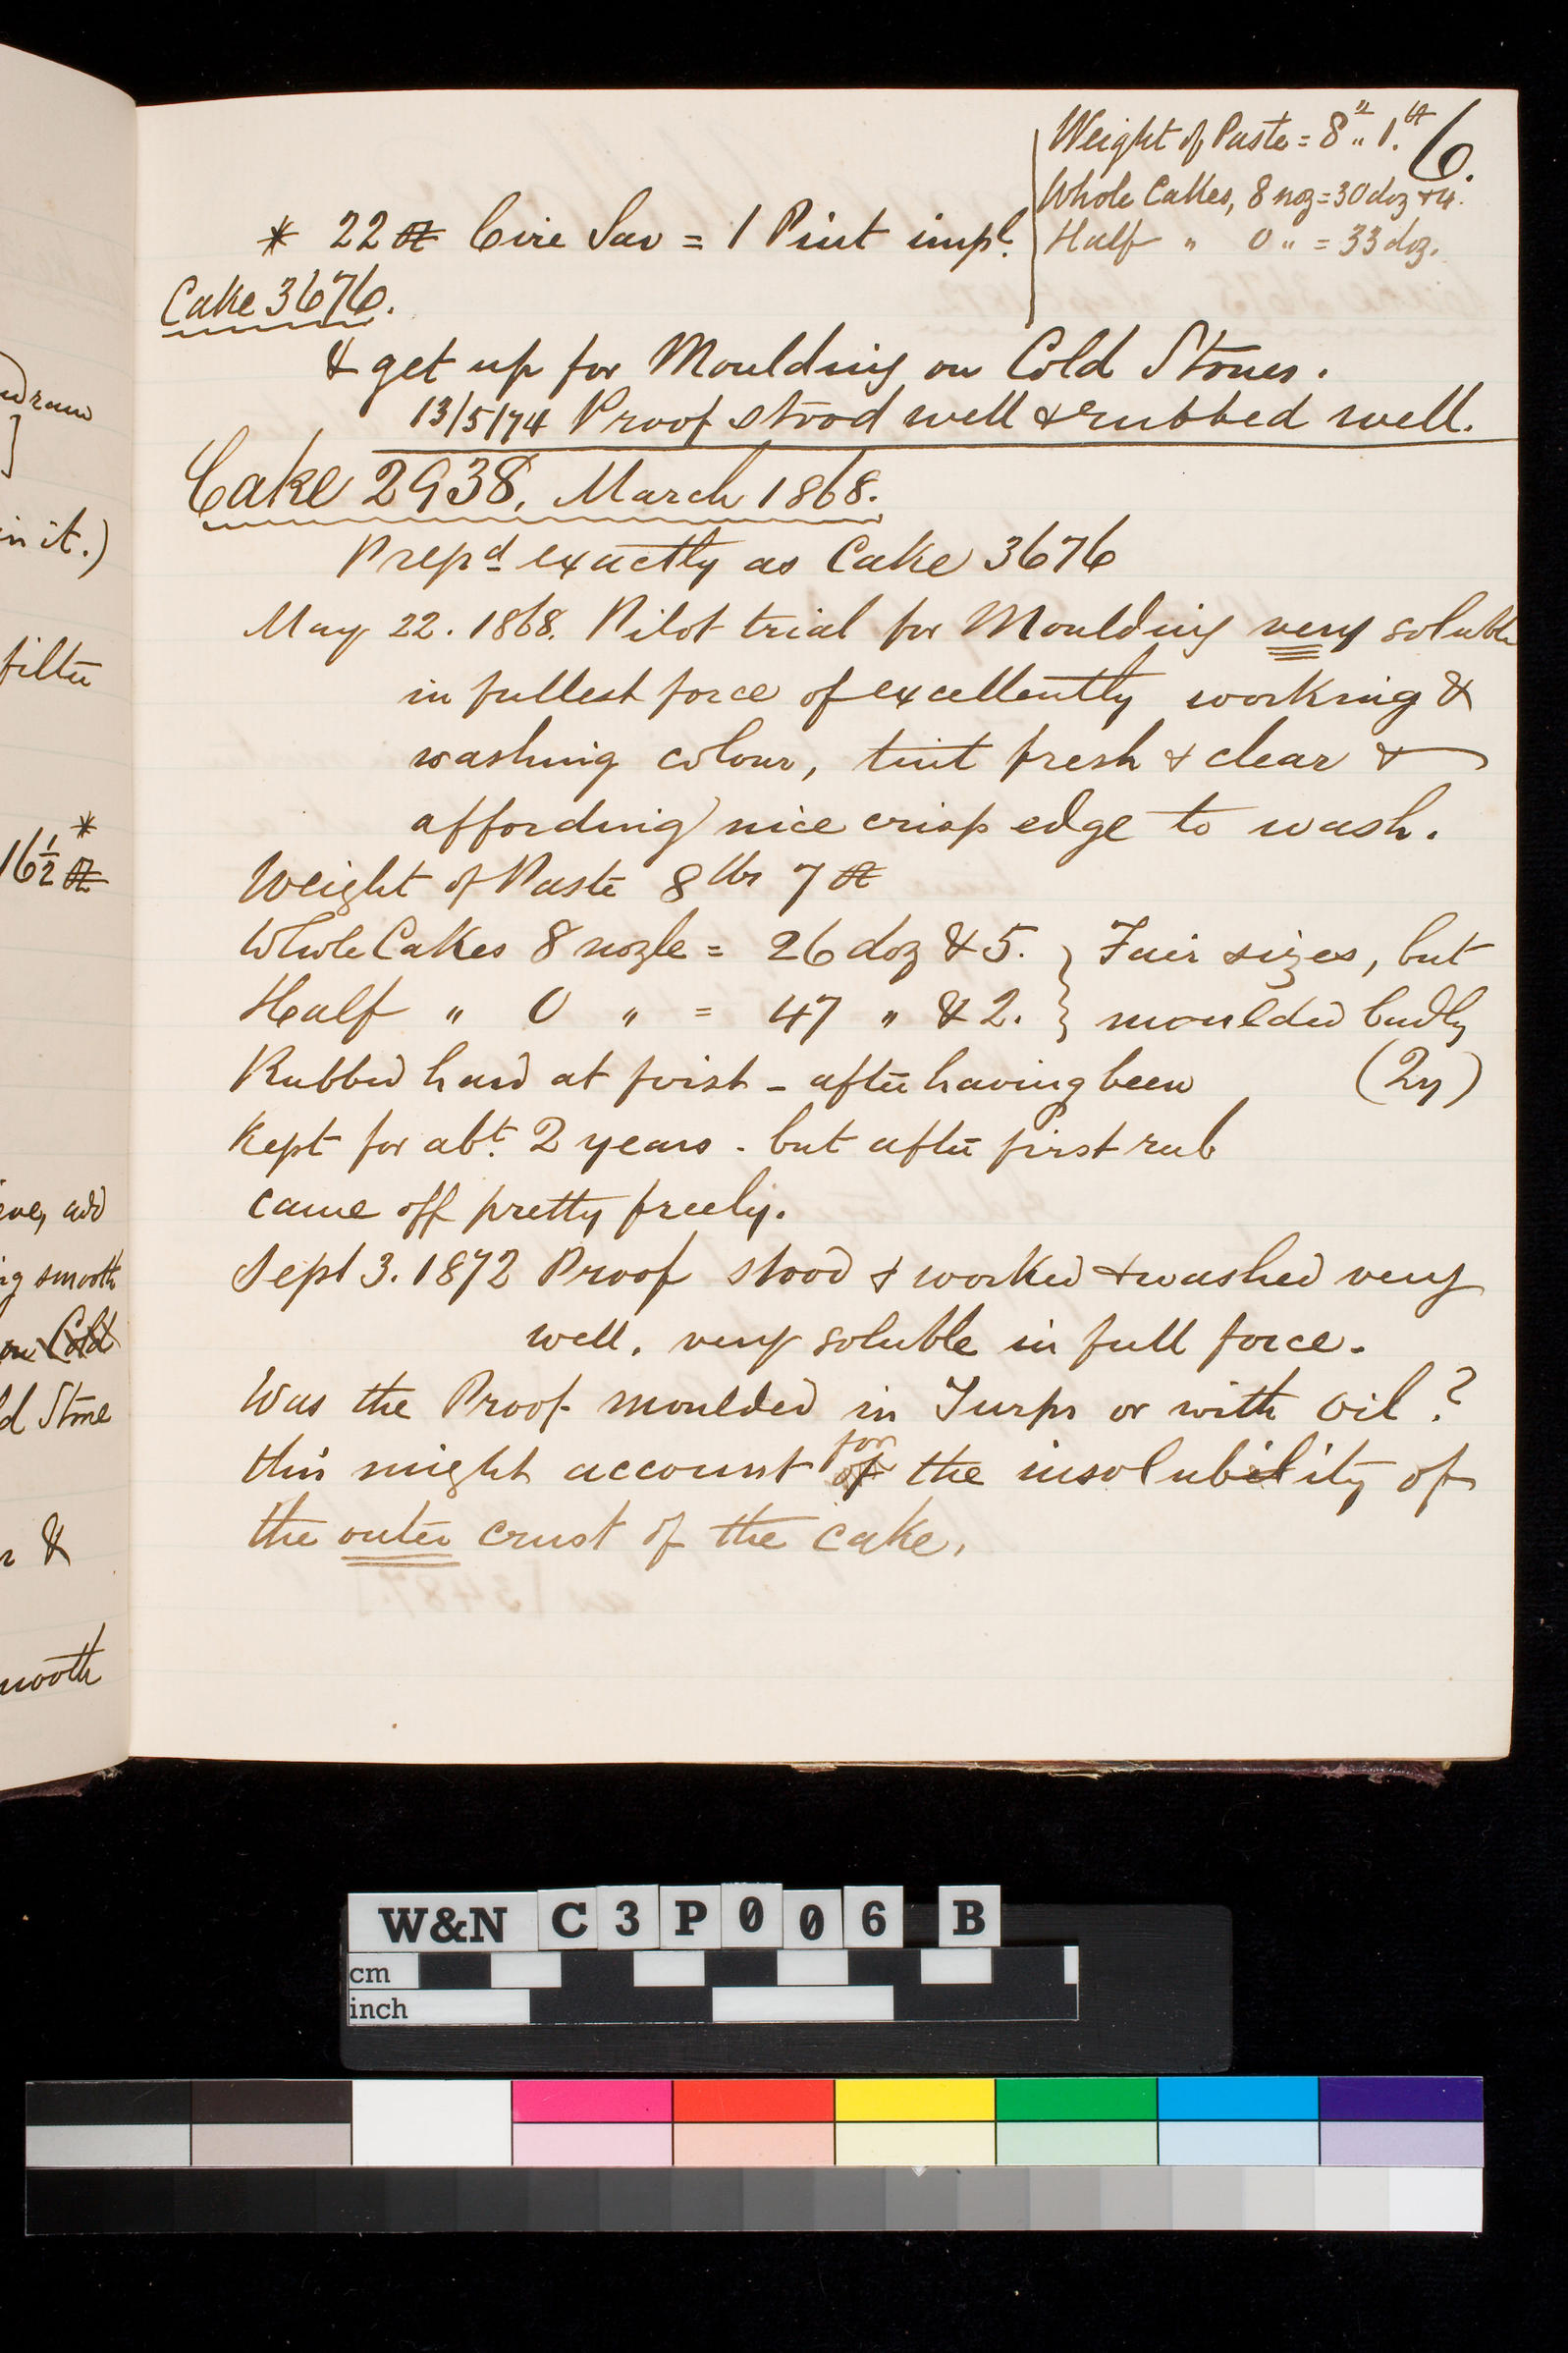 Weight of Paste = 8 lb .. 1. oz
6.
Whole Cakes, 8 noz = 30 doz + 4.
Half " 0 " = 33 doz.
* 22 oz Cire Sav = 1 Pint impl.
Cake 3676.
& get up for Moulding on Cold Stones.
13/5/74 Proof stood well & rubbed well.
Cake 2938, March 1868.
Prepd exactly as Cake 3676
May 22. 1868. Pilot trial for Moulding very soluble
in fullest force of excellently working &
washing colour, tint fresh & clear &
affording nice crisp edge to wash.
Weight of Paste 8 lbs 7 oz
Whole Cakes 8 nozle = 26 doz & 5. } Fair sizes, but
Half " 0 " = 47 " & 2. } moulded badly
Rubbed hard at first - after having been (2y)
Kept for abt. 2 years - but after first rub
came off pretty freely.
Sept 3. 1872 Proof stood & worked & washed very
well, very soluble in full force.
Was the Proof moulded in Turps or with oil?
this might account for the insolubility of
the outer crust of the cake.
ndraw
]
in it.)
filter
*
16½ oz
add
smooth
on Cold
Stone
&
smooth
W&N C3P006 B
cm
inch